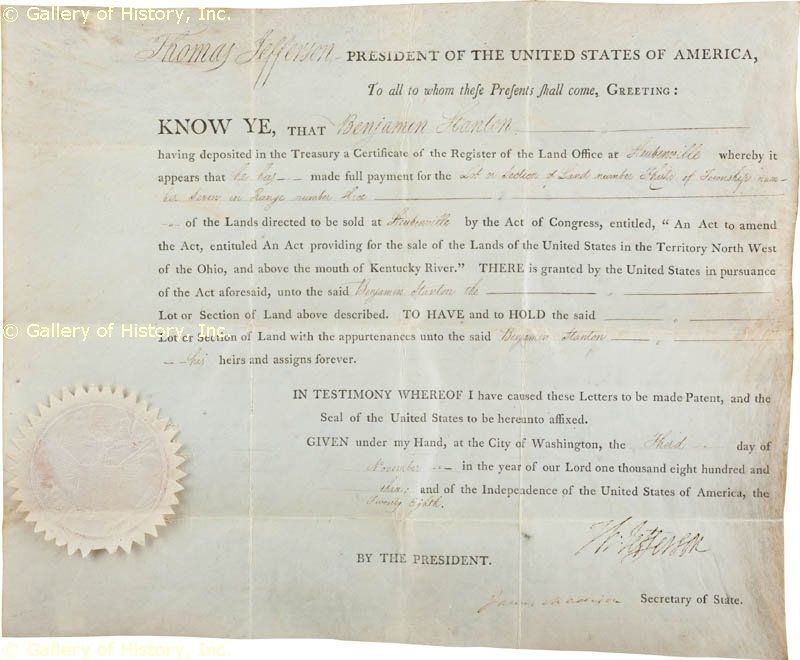 © Gallery of History, Inc.
Thomas Jefferson PRESIDENT OF THE UNITED STATES OF AMERICA,
To all to whom theſe Preſents ſhall come, GREETING:
KNOW YE, THAT Benjamin Stanton
having deposited in the Treasury a Certificate of the Register of the Land Office at Steubenville whereby it
appears that he has made full payment for the Lot or Section of Land number of Township num-
ber Seven in Range number
of the Lands directed to be sold at Steubenville by the Act of Congress, entitled, “ An Act to amend
the Act, entituled An Act providing for the sale of the Lands of the United States in the Territory North West
of the Ohio, and above the mouth of Kentucky River.” THERE is granted by the United States in pursuance
of the Act aforesaid, unto the said Benjamin Stanton the
Lot or Section of Land above described. TO HAVE and to HOLD the said
© Gallery of History, Inc.
Lot or Section of Land with the appurtenances unto the said Benjamin Stanton
his heirs and assigns forever.
IN TESTIMONY WHEREOF I have caused these Letters to be made Patent, and the
Seal of the United States to be hereunto affixed.
GIVEN under my Hand, at the City of Washington, the Third day of
November in the year of our Lord one thousand eight hundred and
three; and of the Independence of the United States of America, the
Twenty Eighth.
Th: Jefferson
BY THE PRESIDENT.
James Madison Secretary of State.
© Gallery of History, Inc.